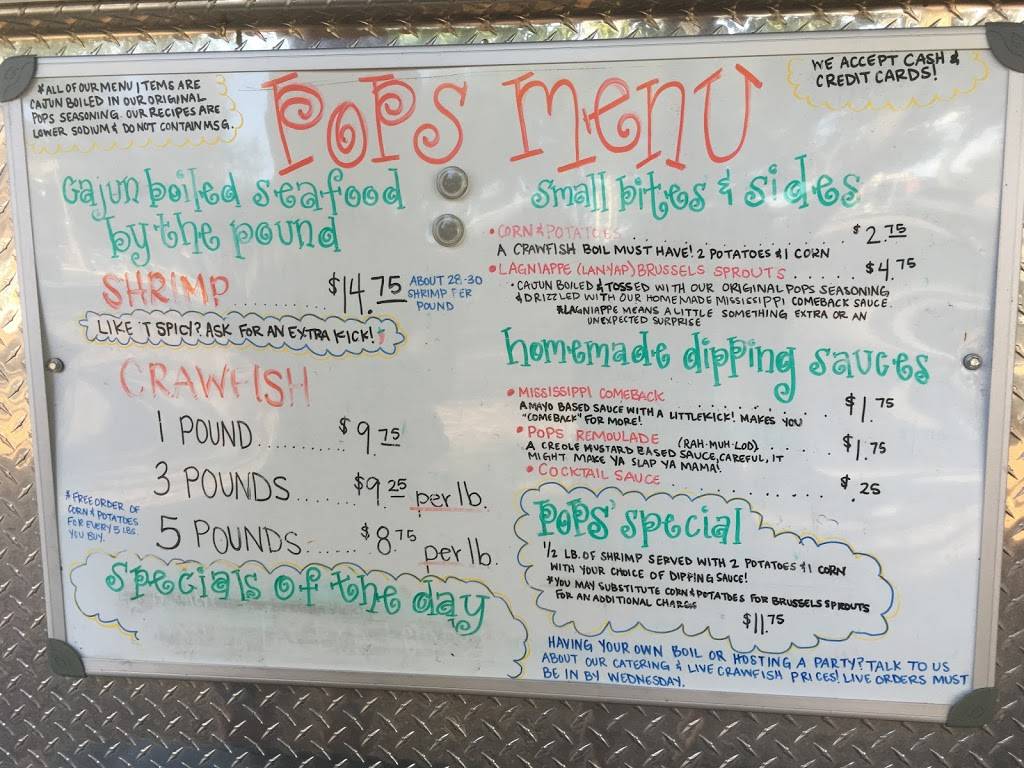 *ALL OF OUR MENU ITEMS ARE
CAJUN BOILED IN OUR ORIGINAL
POPS SEASONING. OUR RECIPES ARE
LOWER SODIUM & DO NOT CONTAIN MSG.
POPS MENU
WE ACCEPT CASH &
CREDIT CARDS!
Cajun boiled seafood
by the pound
SHRIMP ............ $14.75
ABOUT 28-30
SHRIMP PER
POUND
LIKE 'T SPICY? ASK FOR AN EXTRA KICK!
CRAWFISH
1 POUND....... $9.75
3 POUNDS...... $9.25 per lb.
5 POUNDS...... $8.75 per lb.
*FREE ORDER OF
CORN & POTATOES
FOR EVERY 5 LBS.
YOU BUY.
Specials of the day
small bites & sides
• CORN & POTATOES ............ $2.75
A CRAWFISH BOIL MUST HAVE! 2 POTATOES & 1 CORN
• LAGNIAPPE (LAN·YAP) BRUSSELS SPROUTS ...... $4.75
• CAJUN BOILED & TOSSED WITH OUR ORIGINAL POPS SEASONING
& DRIZZLED WITH OUR HOMEMADE MISSISSIPPI COMEBACK SAUCE.
*LAGNIAPPE MEANS A LITTLE SOMETHING EXTRA OR AN
UNEXPECTED SURPRISE
homemade dipping sauces
• MISSISSIPPI COMEBACK ............ $1.75
A MAYO BASED SAUCE WITH A LITTLE KICK! MAKES YOU
"COMEBACK" FOR MORE!
• POPS REMOULADE (RAH-MUH-LOD) ...... $1.75
A CREOLE MUSTARD BASED SAUCE, CAREFUL, IT
MIGHT MAKE YA SLAP YA MAMA!
• COCKTAIL SAUCE ............ $.25
POPS' special
1/2 LB. OF SHRIMP SERVED WITH 2 POTATOES & 1 CORN
WITH YOUR CHOICE OF DIPPING SAUCE!
*YOU MAY SUBSTITUTE CORN & POTATOES FOR BRUSSELS SPROUTS
FOR AN ADDITIONAL CHARGE
$11.75
HAVING YOUR OWN BOIL OR HOSTING A PARTY? TALK TO US
ABOUT OUR CATERING & LIVE CRAWFISH PRICES! LIVE ORDERS MUST
BE IN BY WEDNESDAY.